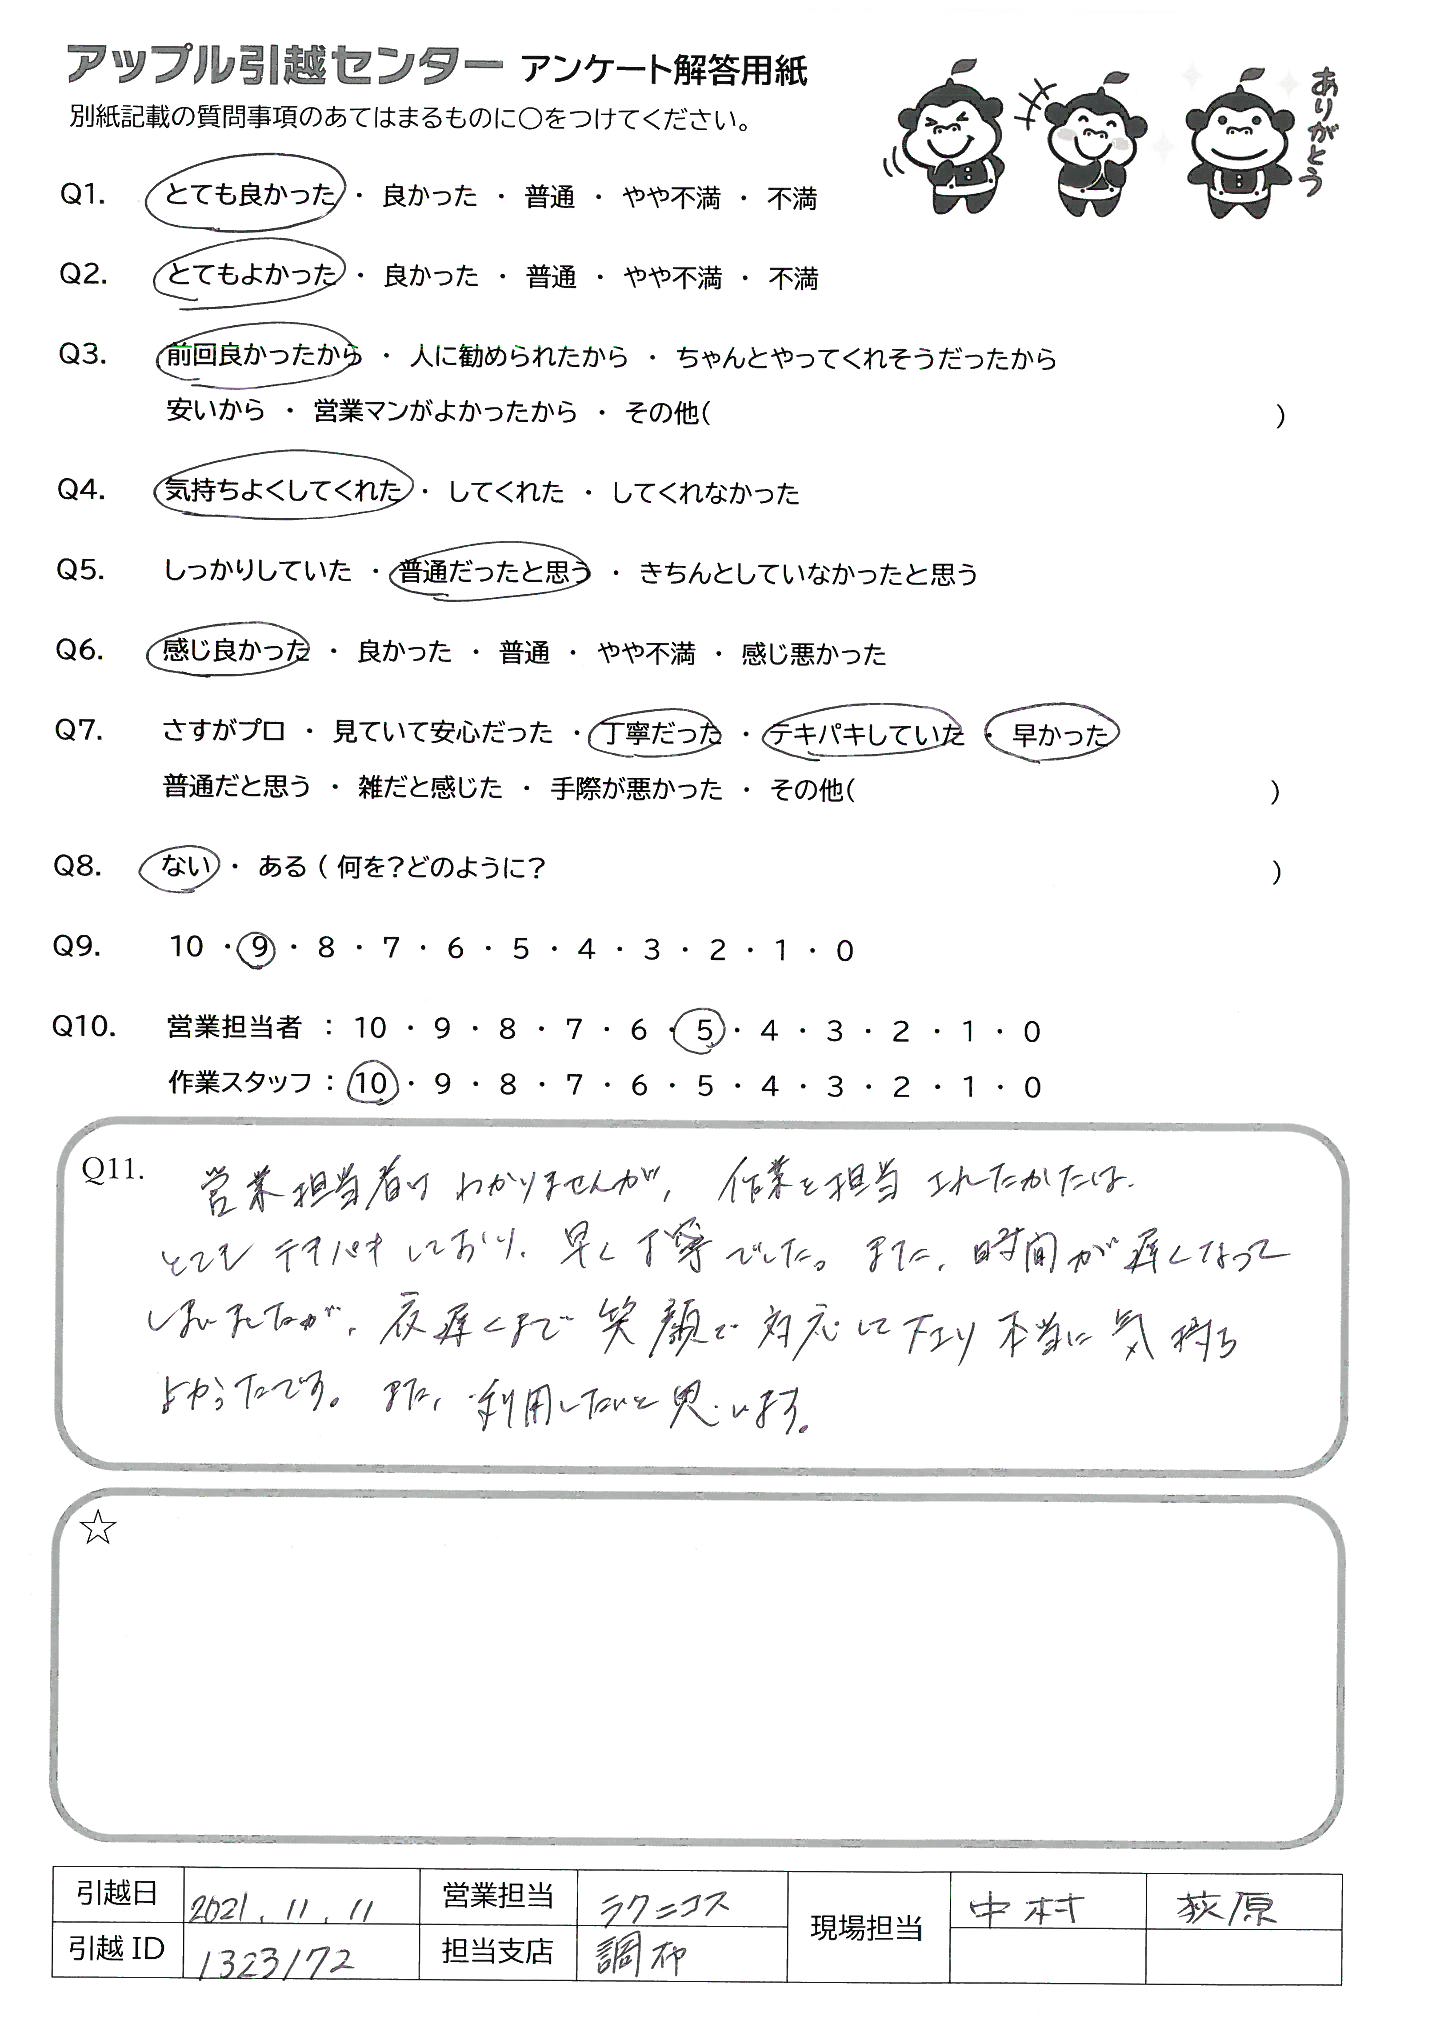 アップル引越センター アンケート解答用紙
別紙記載の質問事項のあてはまるものに○をつけてください。
ありがとう
Q1. とても良かった ・ 良かった ・ 普通 ・ やや不満 ・ 不満
Q2. とてもよかった ・ 良かった ・ 普通 ・ やや不満 ・ 不満
Q3. 前回良かったから ・ 人に勧められたから ・ ちゃんとやってくれそうだったから
安いから ・ 営業マンがよかったから ・ その他( )
Q4. 気持ちよくしてくれた ・ してくれた ・ してくれなかった
Q5. しっかりしていた ・ 普通だったと思う ・ きちんとしていなかったと思う
Q6. 感じ良かった ・ 良かった ・ 普通 ・ やや不満 ・ 感じ悪かった
Q7. さすがプロ ・ 見ていて安心だった ・ 丁寧だった ・ テキパキしていた ・ 早かった
普通だと思う ・ 雑だと感じた ・ 手際が悪かった ・ その他( )
Q8. ない ・ ある ( 何を?どのように? )
Q9. 10 ・ 9 ・ 8 ・ 7 ・ 6 ・ 5 ・ 4 ・ 3 ・ 2 ・ 1 ・ 0
Q10. 営業担当者 : 10 ・ 9 ・ 8 ・ 7 ・ 6 ・ 5 ・ 4 ・ 3 ・ 2 ・ 1 ・ 0
作業スタッフ : 10 ・ 9 ・ 8 ・ 7 ・ 6 ・ 5 ・ 4 ・ 3 ・ 2 ・ 1 ・ 0
Q11. 営業担当者はわかりませんが、作業を担当されたかたは、
とてもテキパキしており、早く丁寧でした。また、時間が遅くなって
しまいましたが、夜遅くまで笑顔で対応して下さり本当に気持ち
よかったです。また、利用したいと思います。
☆
引越日 2021.11.11 営業担当 ラクニコス 現場担当 中村 荻原
引越ID 1323172 担当支店 調布